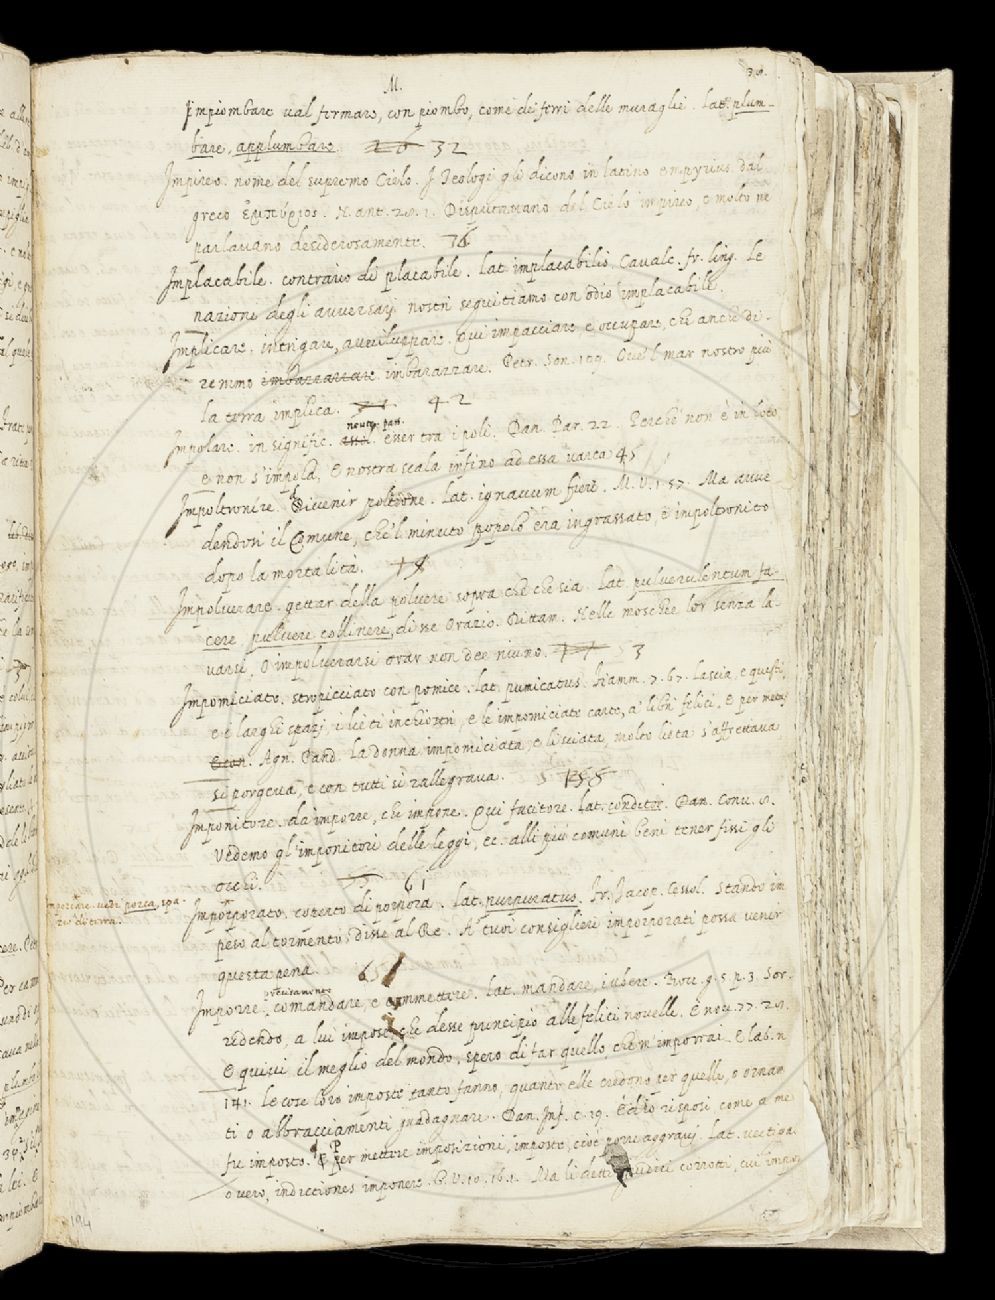 M.
Impiombare val fermare, con piombo, come de ferri delle muraglie. Lat. plum-
bare, applumbare. 32
Impireo. nome del supremo Cielo. I Teologi gli dicono in latino empyrius. dal
greco N. ant. 28. 1. Disputavano del Cielo impireo, e molto ne
parlavano desiderosamente. 36
Implacabile. contrario di placabile. Lat. implacabilis. Cavalc. fr. ling. Le
nazione degli avversarj nostri seguitiamo con odio implacabile.
Implicare. intrigare, avviluppare. Qui impacciare e occupare, che anche di-
remmo imbarazzare imbarazzare. Petr. Son. 109. Ove 'l mar nostro più
la terra implica. 42
Impolare. in signific. neutr. pass. esser tra i poli. Dan. Par. 22. Perchè non è in loco
e non s'impola, E nostra scala infino ad essa varca 45
Impoltronire. Divenir poltrone. Lat. ignavum fieri. M. V. 1. 57. Ma avve
dendosi il Comune, che 'l minuto popolo era ingrassato, e impoltronito
dopo la mortalità.
Impolverare. gettar della polvere sopra che che sia. Lat. pulverulentum fa-
cere pulvere collinere, disse Orazio. Dittam. Nelle moschee lor senza la-
varsi, O impolverarsi orar non dee niuno. 3
Impomiciato. stropicciato con pomice. Lat. pumicatus. Fiamm. 7. 67. Lascia, e questi,
e i larghi spazj, i lieti inchiostri, e le impomiciate carte, a' libri felici, E per
Agn. Pand. La donna impomiciata, e lisciata, molto lieta s'affrettava
si porgeva, e con tutti si rallegrava.
Imponitore. da imporre, che impone. Qui facitore. Lat. conditor. Dan. Conv. 8.
Vedemo gl'imponitori delle leggi, ec. alli più comuni beni tener fissi gli
occhi. 61
vedi porca, spa-
zio di terra.
Imporporato. coperto di porpora. Lat. purpuratus. Fr. Jacop. Cessol. Stando im
peso al tormento, disse al Re. A' tuoi consiglieri imporporati possa venir
questa pena.
Imporre. precisamente comandare, e commettere. Lat. mandare, iubere. Bocc. g. 5. p. 3. Sor-
ridendo, a lui impose, che desse principio alle felici novelle. E nov. 77. 28.
E quivi il meglio del mondo, spero di far quello, che m'imporrai. E lab. n
141. Le cose loro imposte tanto fanno, quant'elle credono per quelle, o ornam
ti o abbracciamenti guadagnare. Dan. Inf. c. 19. Ed io risposi, come a me
fu imposto. Per mettere imposizioni, imposte, cioè porre aggravj. Lat. vectiga
overo, indictiones imponere. G. V. 10. 16. 1. Ma li detti giudici corrotti, cui
194